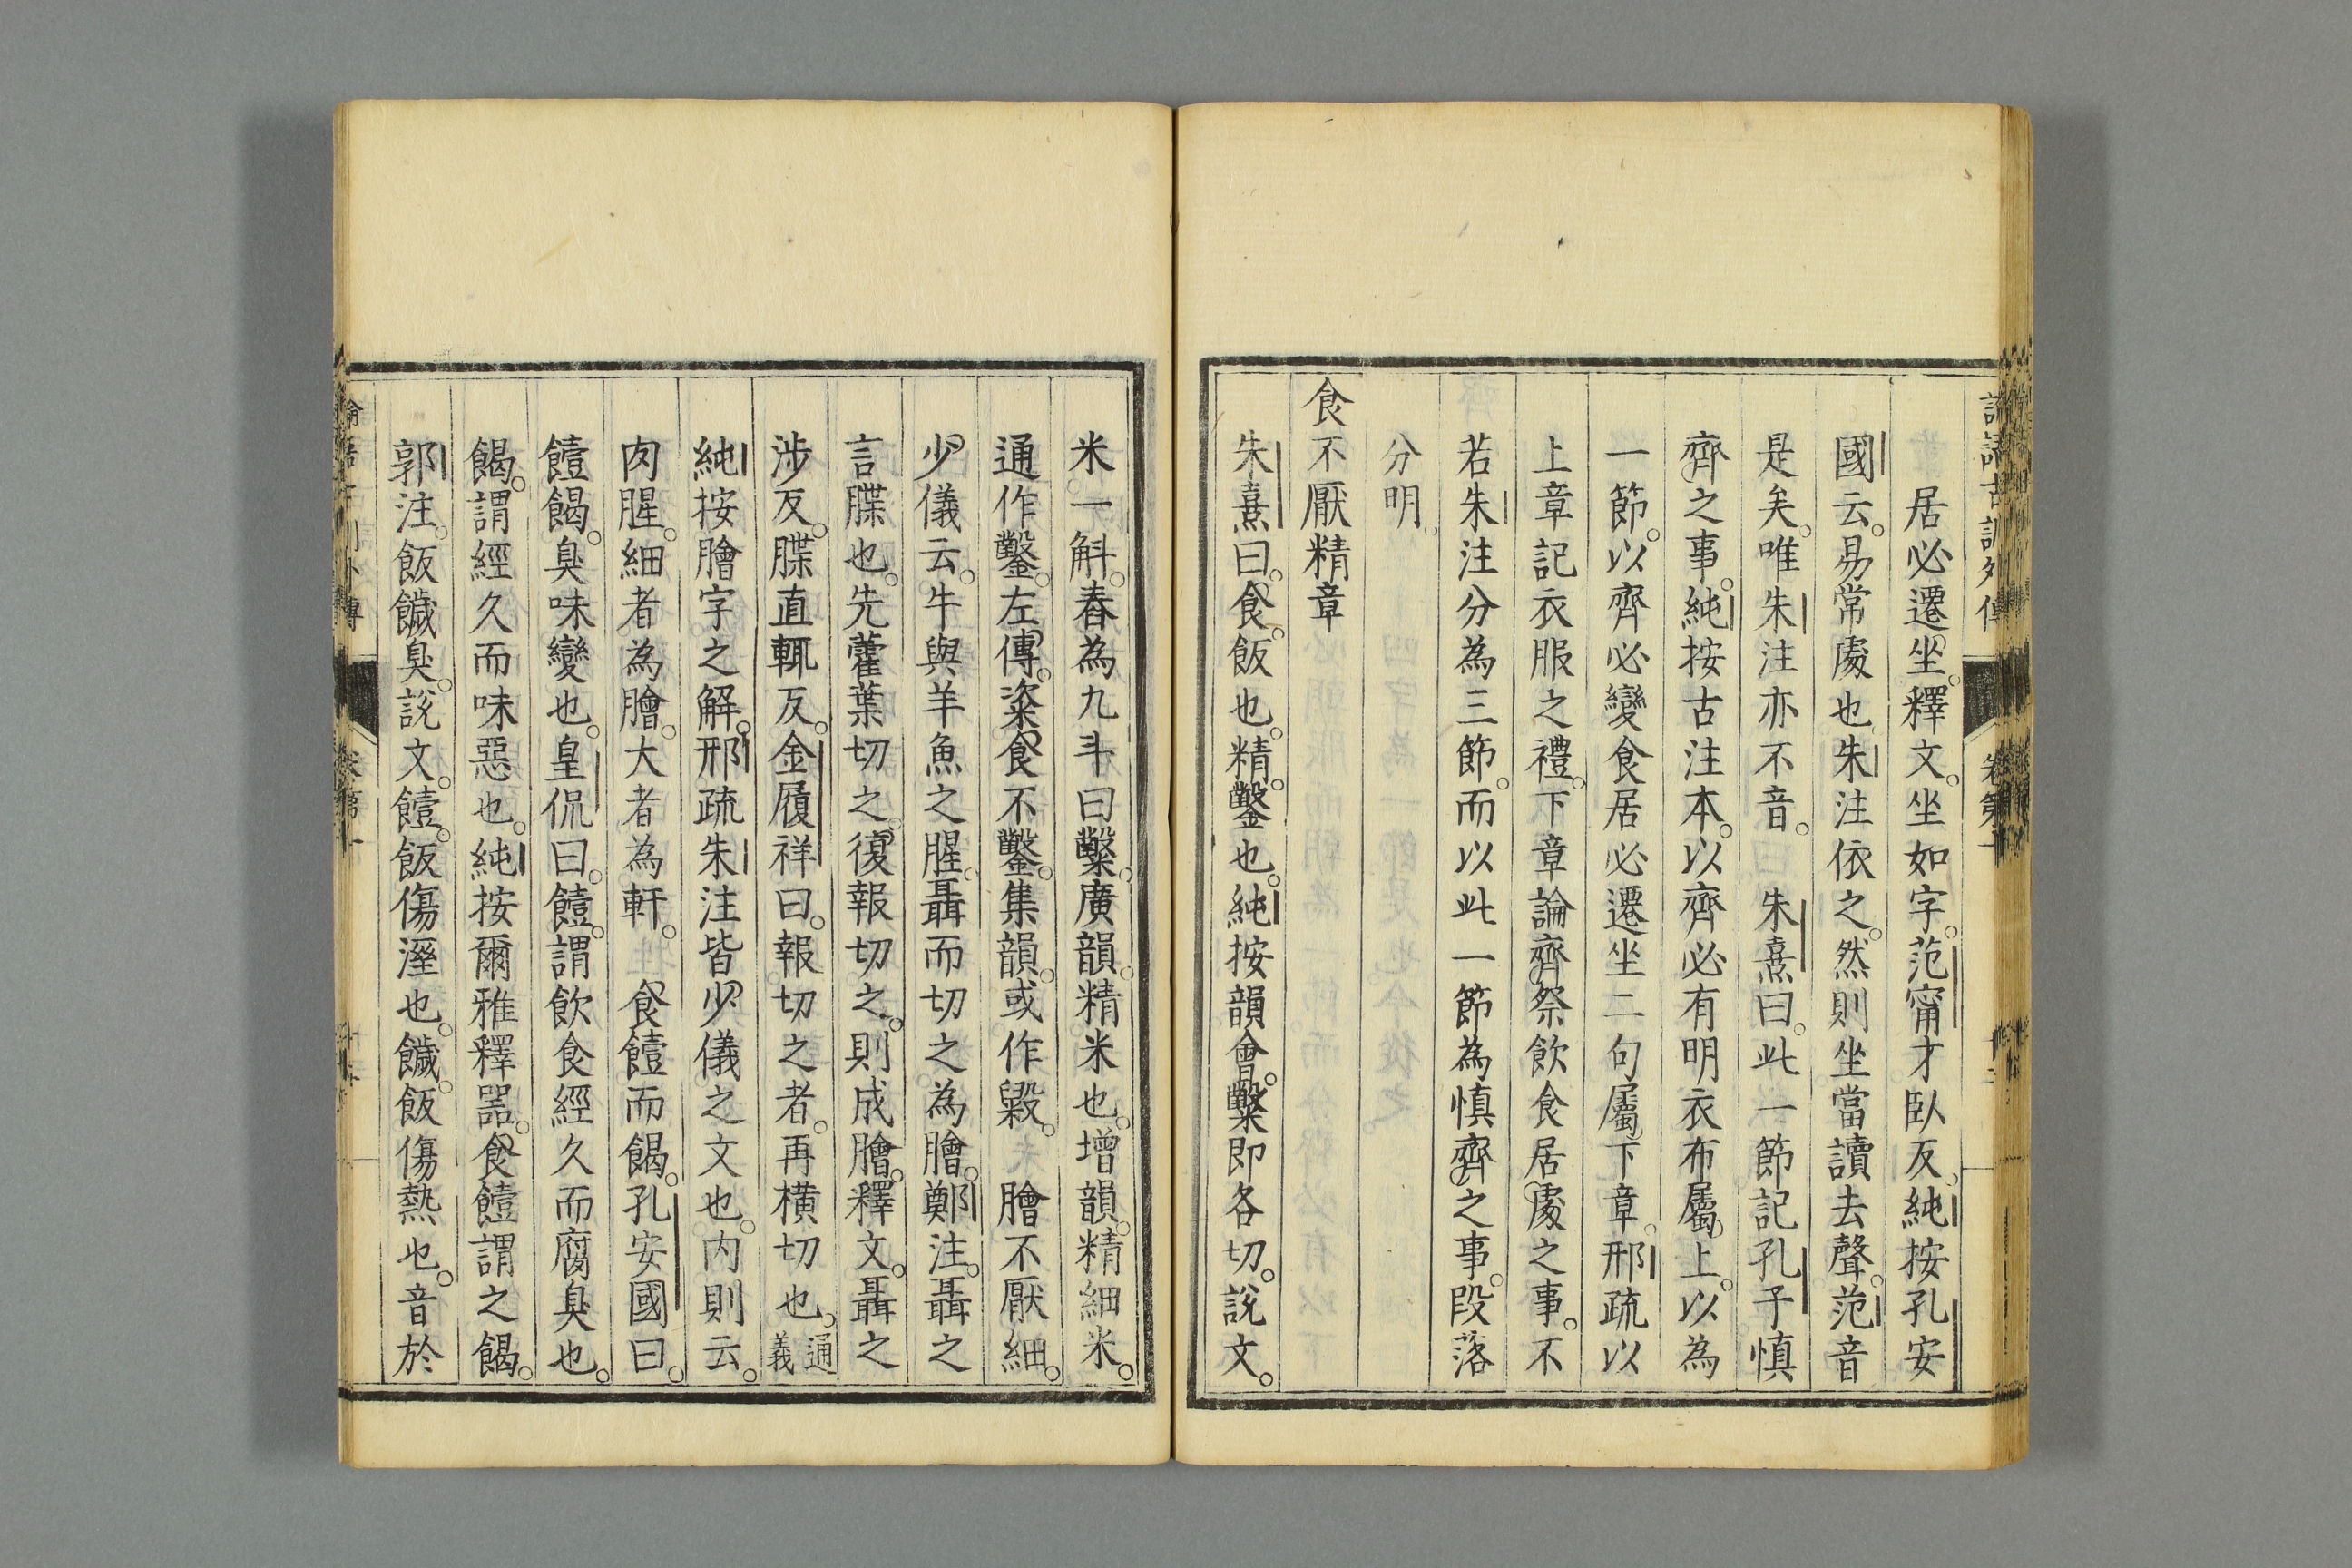 居必遷坐。釋文。坐如字。范甯才臥反。純按孔安
國云。易常處也朱注依之。然則坐當讀去聲。范音
是矣。唯朱注亦不音。朱熹曰。此一節記孔子慎
齊之事。純按古注本。以齊必有明衣布屬上。以為
一節。以齊必變食居必遷坐二句屬下章。邢疏以
上章記衣服之禮。下章論齊祭飲食居處之事。不
若朱注分為三節。而以此一節為慎齊之事。段落
分明。
食不厭精章
朱熹曰。食。飯也。精。鑿也。純按韻會。糳即各切。說文。
米一斛。舂為九斗曰糳。廣韻。精米也。增韻。精細米。
通作鑿。左傳。粢食不鑿。集韻。或作毇。膾不厭細。
少儀云。牛與羊魚之腥。聶而切之為膾。鄭注。聶之
言牒也。先藿葉切之。復報切之。則成膾。釋文。聶之
涉反。牒直輒反。金履祥曰。報切之者。再橫切也。通義
純按膾字之解。邢疏朱注皆少儀之文也。內則云。
肉腥。細者為膾。大者為軒。食饐而餲。孔安國曰。
饐餲。臭味變也。皇侃曰。饐。謂飲食經久而腐臭也。
餲。謂經久而味惡也。純按爾雅釋器。食饐謂之餲。
郭注。飯饖臭。說文。饐。飯傷溼也。饖。飯傷熱也。音於